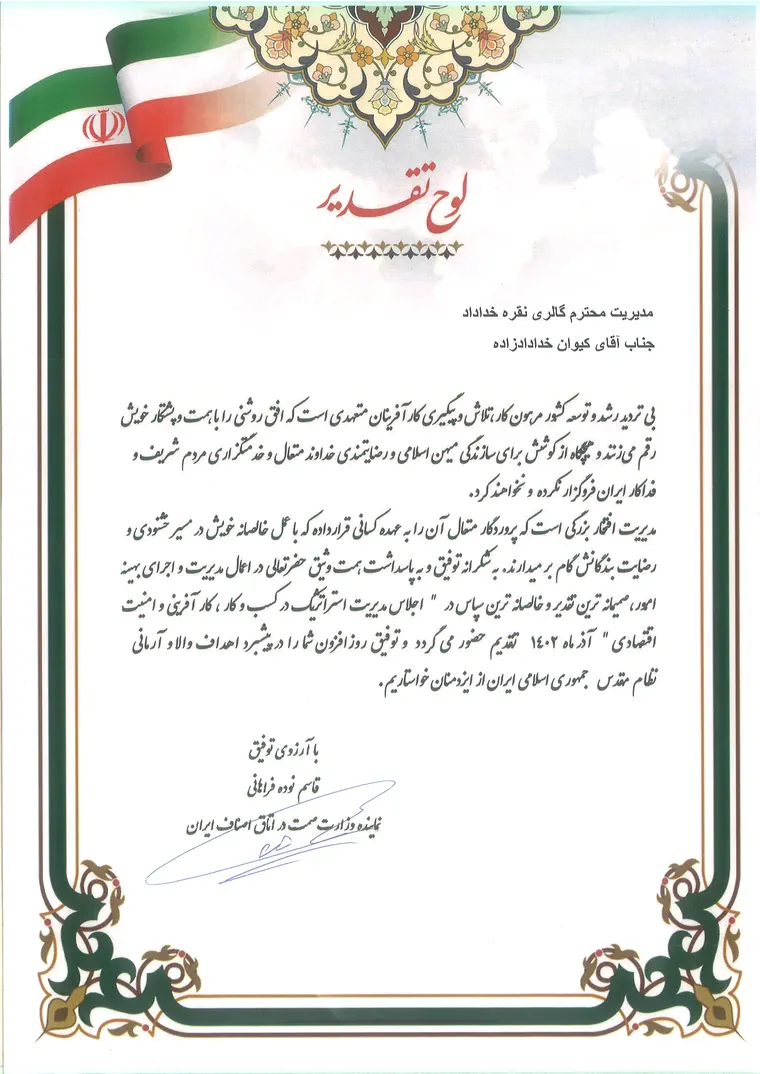 لوح تقدیر
مدیریت محترم گالری نقره خداداد
جناب آقای کیوان خدادادزاده
بی تردید رشد و توسعه کشور مرهون کار، تلاش و پیگیری کارآفرینان متعهدی است که افق روشنی را با همت و پشتکار خویش
رقم می‌زنند و هیچگاه از کوشش برای سازندگی میهن اسلامی و رضایتمندی خداوند متعال و خدمتگزاری مردم شریف و
فداکار ایران فروگزار نکرده و نخواهند کرد.
مدیریت افتخار بزرگی است که پروردگار متعال آن را به عهده کسانی قرار داده که با عمل خالصانه خویش در مسیر خشنودی و
رضایت بندگانش گام بر میدارند. به شکرانه توفیق و به پاسداشت همت وثیق حضرتعالی در اعمال مدیریت و اجرای بهینه
امور، صمیمانه ترین تقدیر و خالصانه ترین سپاس در " اجلاس مدیریت استراتژیک در کسب و کار ، کار آفرینی و امنیت
اقتصادی " آذر ماه ۱۴۰۲ تقدیم حضور می گردد و توفیق روزافزون شما را در پیشبرد اهداف والا و آرمانی
نظام مقدس جمهوری اسلامی ایران از ایزدمنان خواستاریم.
با آرزوی توفیق
قاسم نوده فراهانی
نماینده وزارت صمت در اتاق اصناف ایران